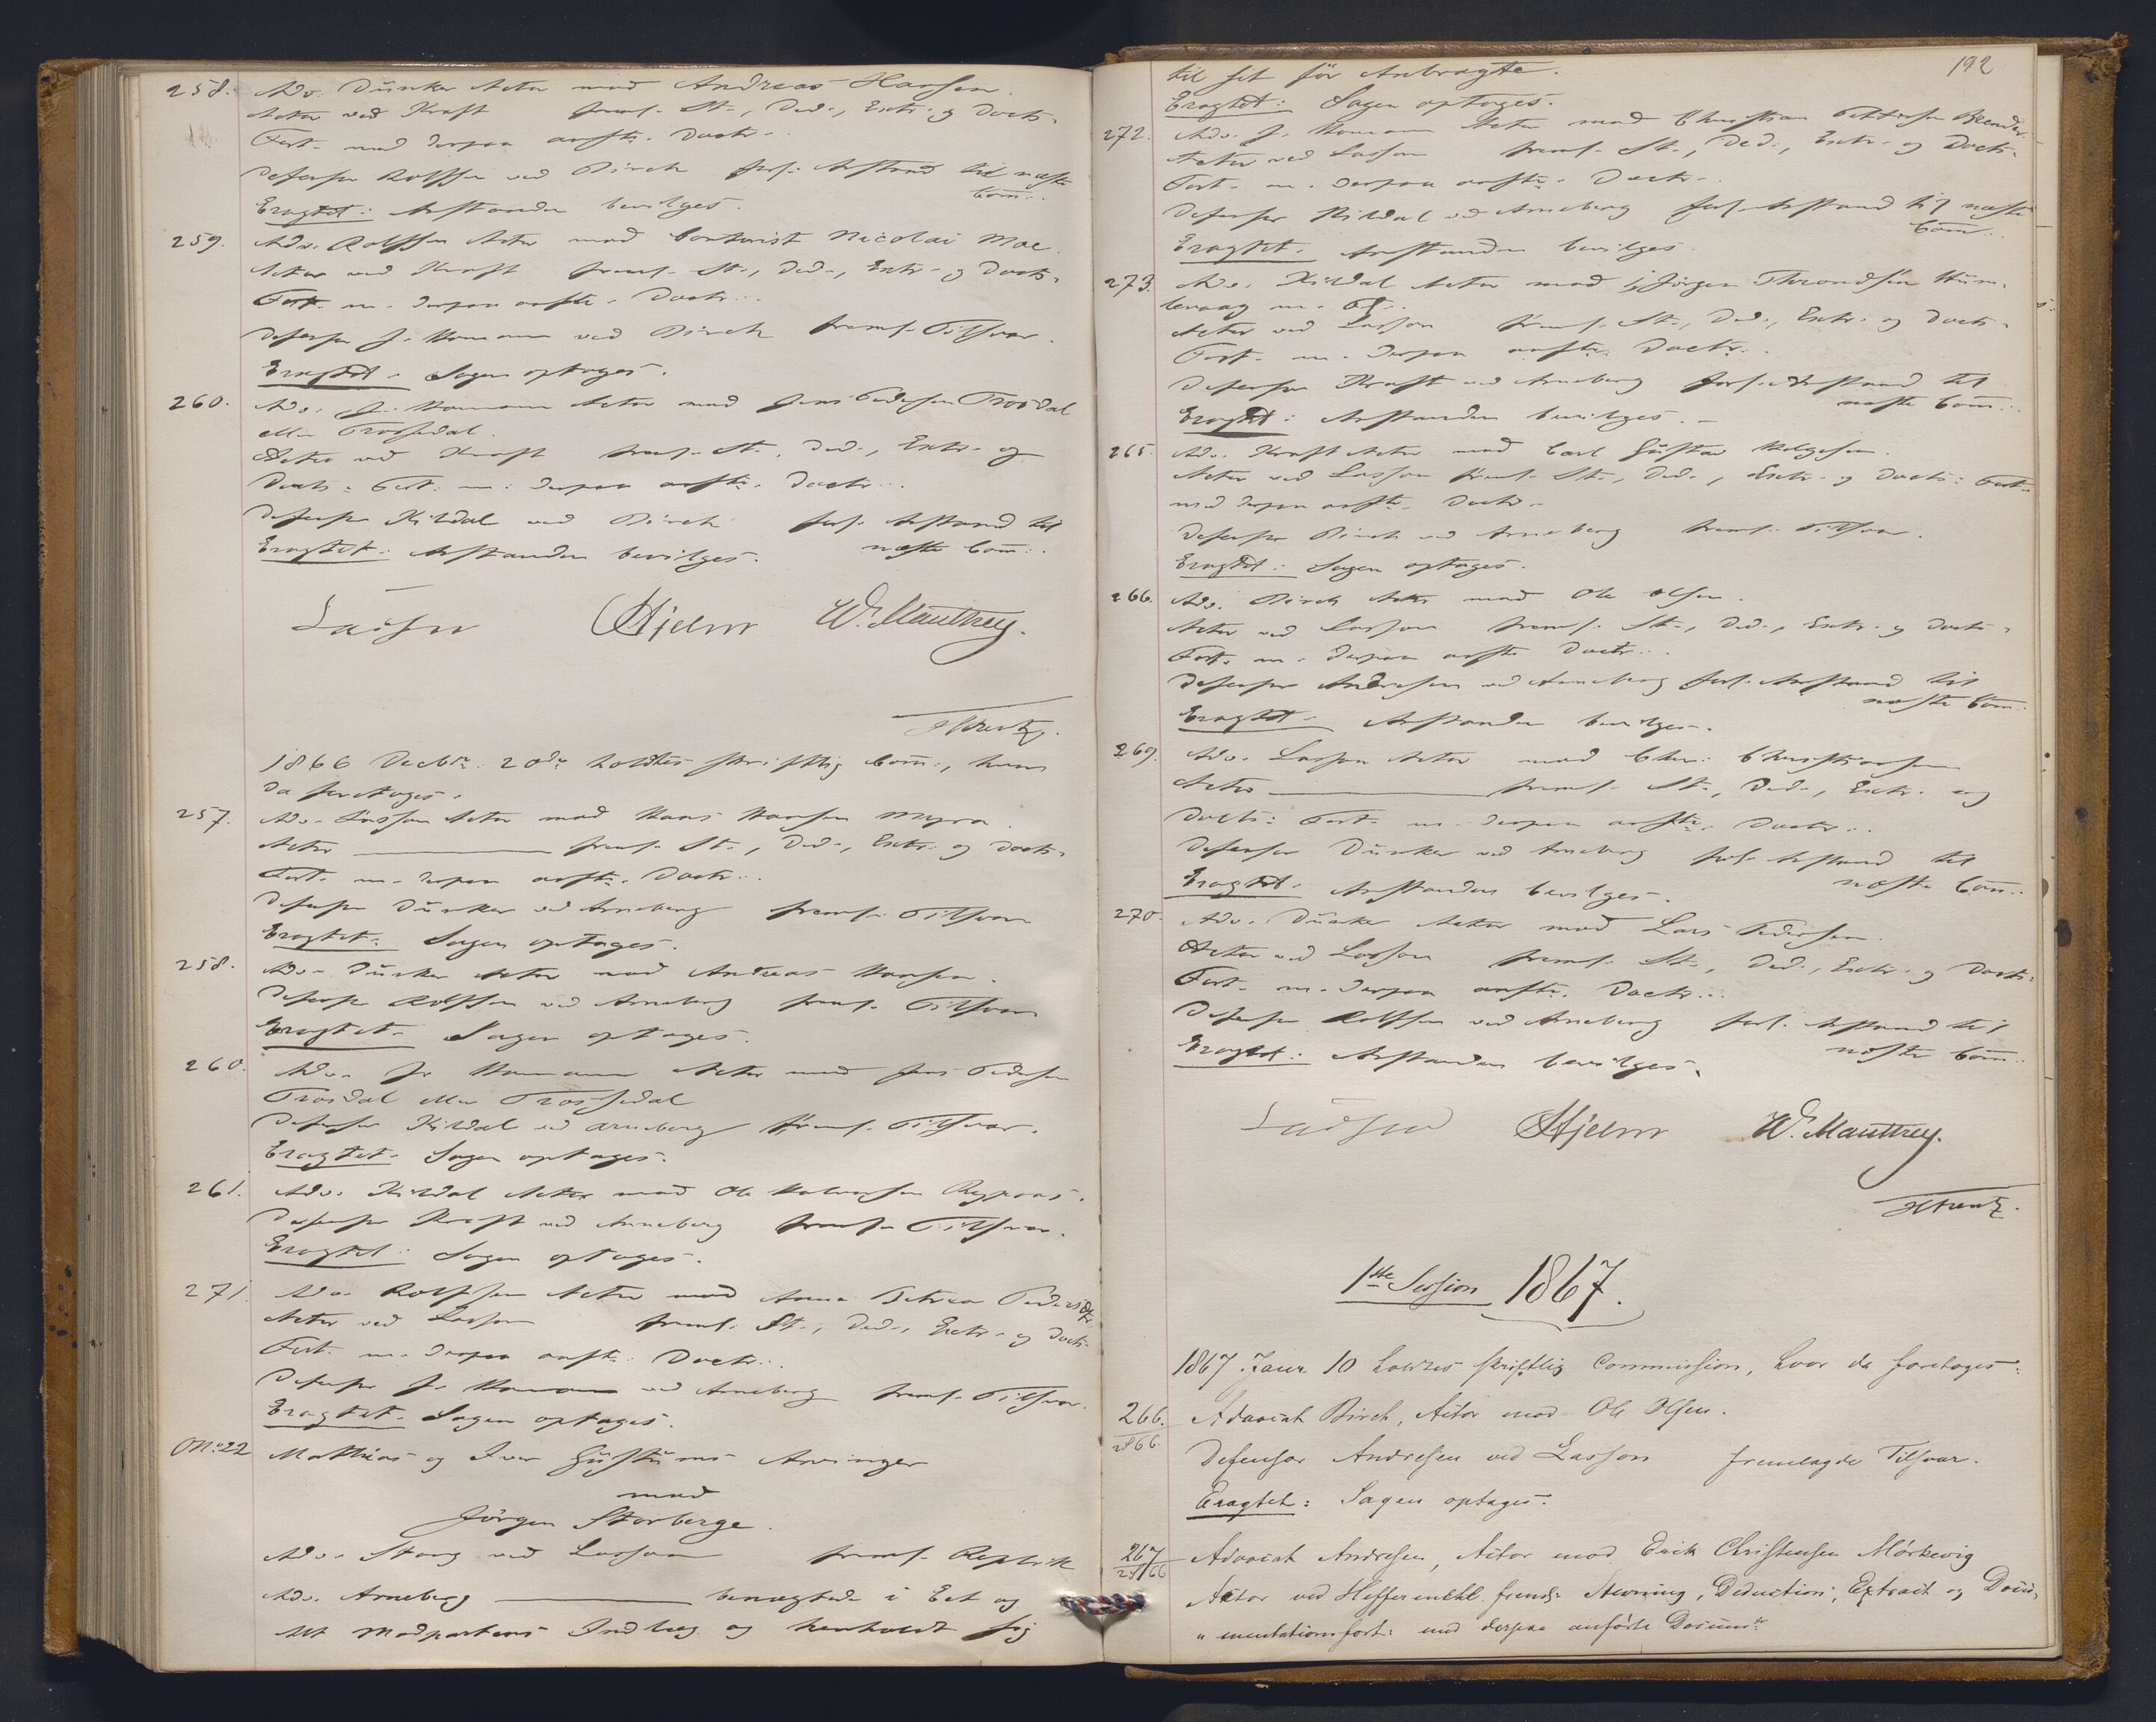 258. Adv. Dünker Actor mod Andreas Hansen.
Actor ved Kraft freml. St., Ded., Extr. og Docts.
Fort. med derpaa anfte. Doctr.
Defensor Rolfsen ved Birch forl. Anstand til næste
Com:.
Eragtet: Anstanden bevilges.
259. Adv. Rolfsen Actor mod Contorist Nicolai Moe.
Actor ved Kraft freml. St., Ded., Extr. og Docts.
Fort. m. derpaa anfte. Doctr.
Defensor J. Homann ved Birch freml. Tilsvar.
Eragtet. Sagen optages.
260. Adv. J. Homann Actor mod Jens Pedersen Trosdal
eller Trossedal.
Actor ved Kraft freml. St., Ded., Extr. og
Docts. Fort. m. derpaa anfte. Doctr.
Defensor Kildal ved Birch forl. Anstand til
næste Com:.
Eragtet: Anstanden bevilges.
Lasson Hjelm W. Manthey.
1866 Decbr. 20de holdtes skriftlig Com:, hvor
da foretoges.
257. Adv. Lasson Actor mod Hans Hansen Myra.
Actor freml. St., Ded., Extr. og Docts.
Fort. m. derpaa anfte. Doctr.
Defensor Dünker ved Arneberg freml. Tilsvar
Eragtet. Sagen optages.
258. Adv. Dünker Actor mod Andreas Hansen.
Defensor Rolfsen ved Arneberg freml. Tilsvar
Eragtet. Sagen optages.
260. Adv. J. Homann Actor mod Jens Pedersen
Trosdal eller Trossedal
Defensor Kildal ved Arneberg freml. Tilsvar.
Eragtet. Sagen optages.
261. Adv. Kildal Actor mod Ole Halvorsen
Defensor Kraft ved Arneberg freml. Tilsvar.
Eragtet: Sagen optages.
271. Adv. Rolfsen Actor mod Anne Petrea Pedersdtr.
Actor ved Lasson freml. St., Ded., Extr. og Docts.
Fort. m. derpaa anfte. Doctr.
Defensor J. Homann ved Arneberg freml. Tilsvar.
Eragtet. Sagen optages.
No. 22 Mathias og Iver Arvinger
mod
Jörgen Storberge.
Adv. Stang ved Lasson freml. Replik
Adv. Arneberg benægtede i Eet og
Alt Modpartens Indlæg og henholdt sig
192
til sit för Anbragte.
Eragtet: Sagen optages.
272. Adv. J. Homann Actor mod Christian Pettersen
Actor ved Lasson freml. St., Ded., Extr. og Docts.
Fort. m. derpaa anfte. Doctr.
Defensor Kildal ved Arneberg forl. Anstand til næste
Com:.
Eragtet. Anstanden bevilges
273. Adv. Kildal Actor mod Jörgen Throndsen
m. Fl.
Actor ved Lasson freml. St., Ded., Extr. og Docts.
Fort. m. derpaa anfte. Doctr.
Defensor Kraft ved Arneberg forl. Anstand til
næste Com:.
Eragtet: Anstanden bevilges.
265. Adv. Kraft Actor mod Carl Gustav Helgesen.
Actor ved Lasson freml. St., Ded., Extr. og Docts: Fort.
med derpaa anfte. Doctr.
Defensor Birch ved Arneberg freml. Tilsvar.
Eragtet: Sagen optages.
266. Adv. Birch Actor mod Ole Olsen.
Actor ved Lasson freml. St., Ded., Extr. og Docts.
Fort. m. derpaa anfte Doctr.
Defensor Andresen ved Arneberg forl. Anstand til
næste Com:
Eragtet. Anstanden bevilges.
269. Adv. Lasson Actor mod Chr. Christiansen
Actor freml. St., Ded., Extr. og
Docts: Fort. m. derpaa anfte. Doctr.
Defensor Dünker ved Arneberg forl. Anstand til
næste Com:.
Eragtet. Anstanden bevilges.
270. Adv. Dünker Actor mod Lars Pedersen.
Actor ved Lasson freml. St., Ded., Extr. og Docts.
Fort. m. derpaa anfte. Doctr.
Defensor Rolfsen ved Arneberg forl. Anstand til
næste Com:.
Eragtet: Anstanden bevilges.
Lasson Hjelm W. Manthey.
1ste Session 1867.
1867 Janr. 10 holdtes skriftlig Commission, hvor da foretoges:
266./1866. Advocat Birch, Actor mod Ole Olsen.
Defensor Andresen ved Lasson fremlagde Tilsvar.
Eragtet: Sagen optages.
267/1866 Advocat Andresen, Actor mod Erik Christensen Mörkevig
Actor ved Heffermehl freml: Stevning, Deduction, Extract og Docu-
"mentationsfort: med derpaa anförte Docum: